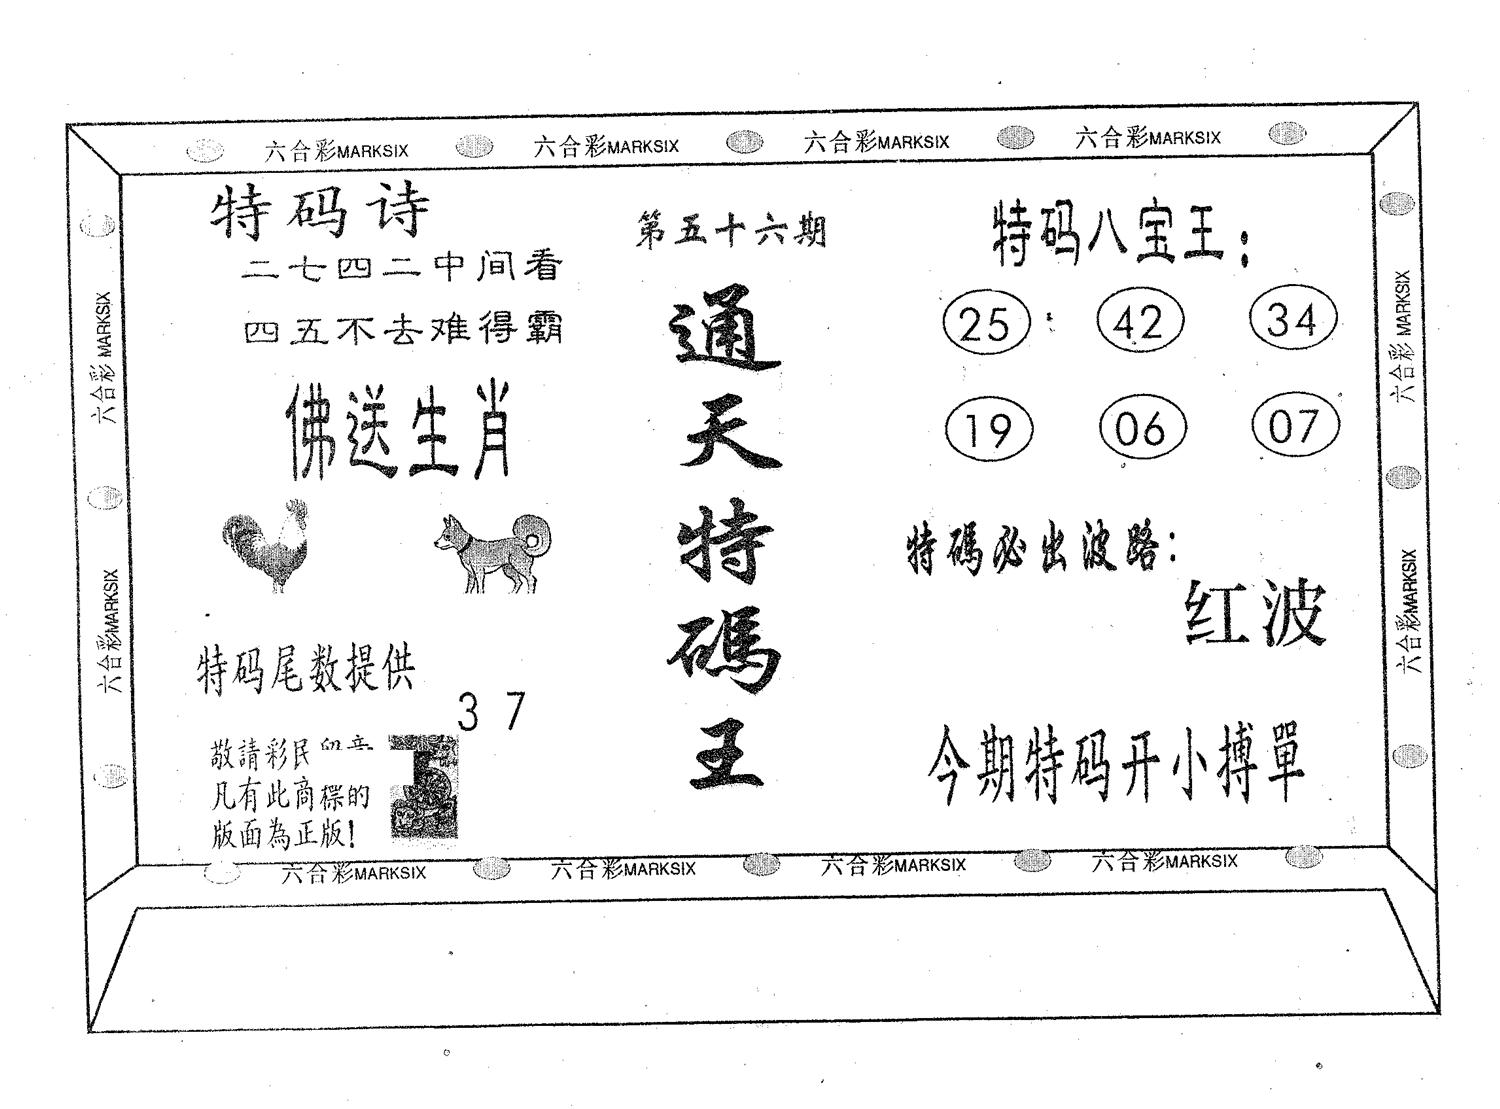 六合彩MARKSIX 六合彩MARKSIX 六合彩MARKSIX 六合彩MARKSIX
六合彩MARKSIX
六合彩MARKSIX
特码诗
二七四二中间看
四五不去难得霸
佛送生肖
特码尾数提供
3 7
敬請彩民留意
凡有此商標的
版面為正版!
第五十六期
通天特碼王
特码八宝王:
25 42 34
19 06 07
特碼必出波路:
红波
今期特码开小搏單
六合彩MARKSIX
六合彩MARKSIX
六合彩MARKSIX 六合彩MARKSIX 六合彩MARKSIX 六合彩MARKSIX